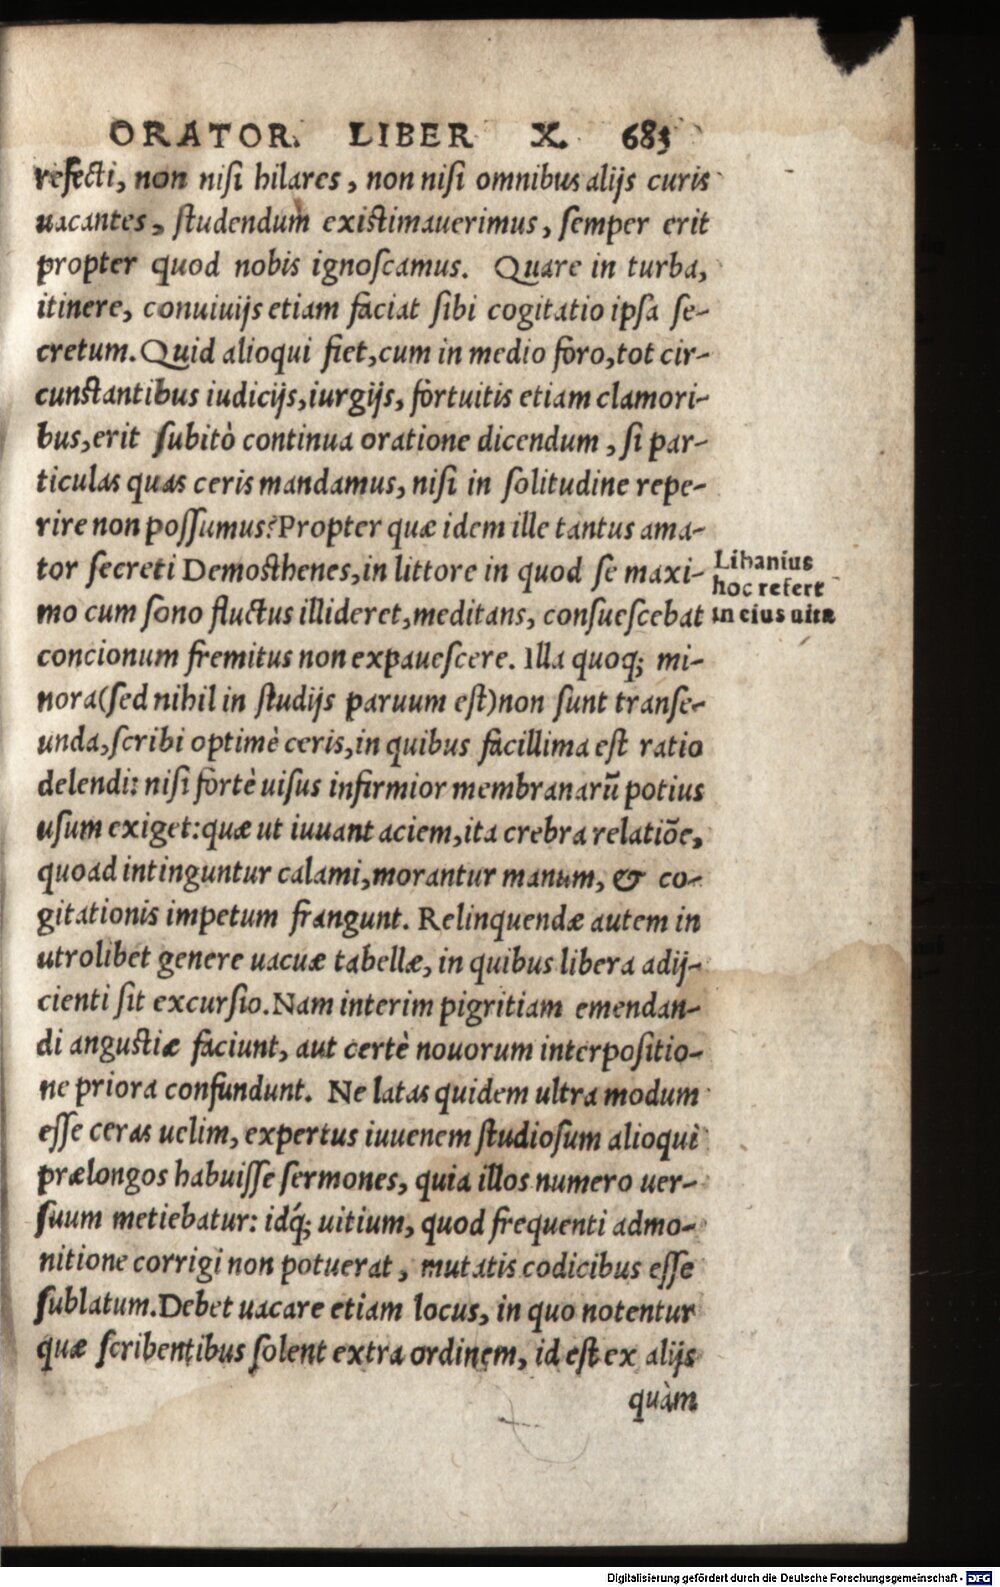 ORATOR. LIBER X. 683
refecti, non nisi hilares, non nisi omnibus alijs curis
uacantes, studendum existimauerimus, semper erit
propter quod nobis ignoscamus. Quare in turba,
itinere, conuiuijs etiam faciat sibi cogitatio ipsa se-
cretum. Quid alioqui fiet, cum in medio foro, tot cir-
cunstantibus iudicijs, iurgijs, fortuitis etiam clamori-
bus, erit subitò continua oratione dicendum, si par-
ticulas quas ceris mandamus, nisi in solitudine repe-
rire non possumus? Propter quæ idem ille tantus ama-
tor secreti Demosthenes, in littore in quod se maxi-
mo cum sono fluctus illideret, meditans, consuescebat
concionum fremitus non expauescere. Illa quoq; mi-
nora (sed nihil in studijs paruum est) non sunt transe-
unda, scribi optimè ceris, in quibus facillima est ratio
delendi: nisi fortè uisus infirmior membranarũ potius
usum exiget: quæ ut iuuant aciem, ita crebra relatiõe,
quoad intinguntur calami, morantur manum, & co-
gitationis impetum frangunt. Relinquendæ autem in
utrolibet genere uacuæ tabellæ, in quibus libera adij-
cienti sit excursio. Nam interim pigritiam emendan-
di angustiæ faciunt, aut certè nouorum interpositio-
ne priora confundunt. Ne latas quidem ultra modum
esse ceras uelim, expertus iuuenem studiosum alioqui
prælongos habuisse sermones, quia illos numero uer-
suum metiebatur: idq́; uitium, quod frequenti admo-
nitione corrigi non potuerat, mutatis codicibus esse
sublatum. Debet uacare etiam locus, in quo notentur
quæ scribentibus solent extra ordinem, id est ex alijs
quàm
Libanius
hoc refert
in eius uita
Digitalisierung gefördert durch die Deutsche Forschungsgemeinschaft - DFG